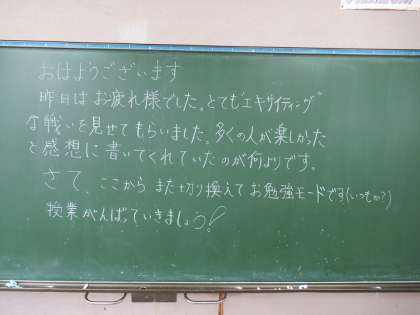 おはようございます
昨日はお疲れ様でした。とてもエキサイティング
な戦いを見せてもらいました。多くの人が楽しかった
と感想に書いてくれていたのが何よりです。
さて、ここからまた切り換えてお勉強モードです(いつもか?)
授業がんばっていきましょう!